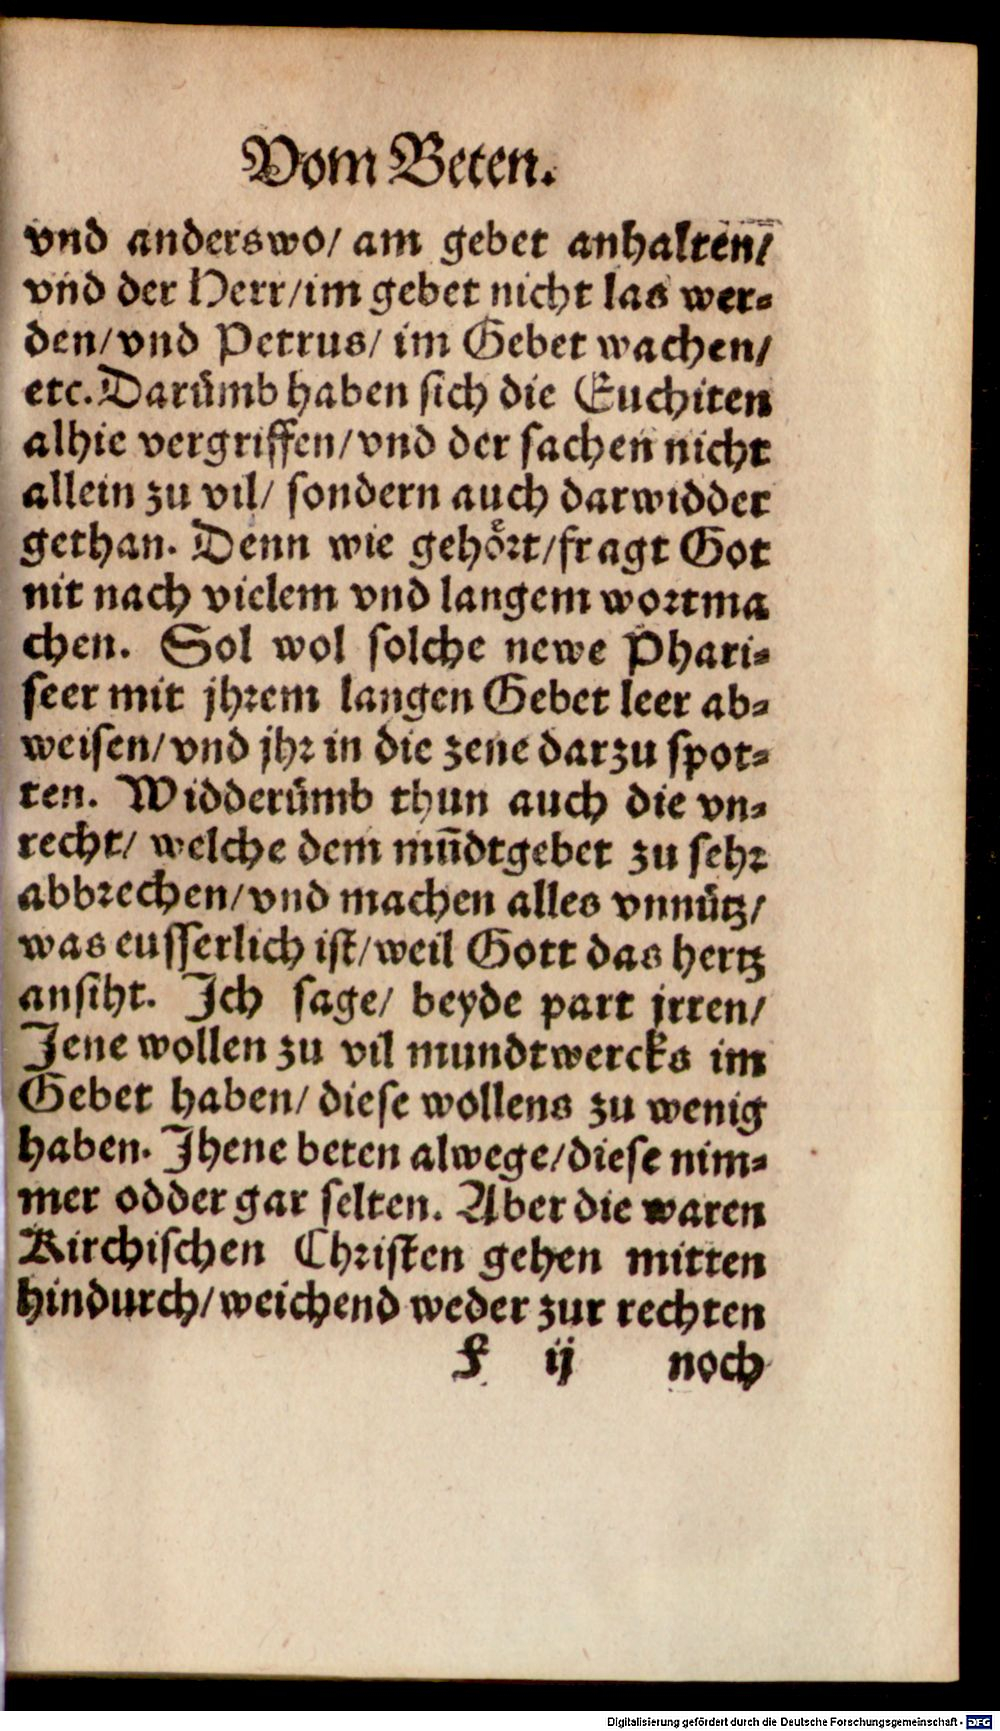 Vom Beten.
vnd anderswo/ am gebet anhalten/
vnd der Herr/im gebet nicht las wer⸗
den/vnd Petrus/ im Gebet wachen/
etc. Darümb haben sich die Euchiten
alhie vergriffen/vnd der sachen nicht
allein zu vil/ sondern auch darwidder
gethan. Denn wie gehoͤrt/fragt Got
nit nach vielem vnd langem wortma
chen. Sol wol solche newe Phari⸗
seer mit jhrem langen Gebet leer ab⸗
weisen/vnd jhr in die zene darzu spot⸗
ten. Widderümb thun auch die vn⸗
recht/ welche dem mūdtgebet zu sehr
abbrechen/vnd machen alles vnnütz/
was eusserlich ist/weil Gott das hertz
ansiht. Ich sage/ beyde part jrren/
Jene wollen zu vil mundtwercks im
Gebet haben/ diese wollens zu wenig
haben. Jhene beten alwege/diese nim⸗
mer odder gar selten. Aber die waren
Kirchischen Christen gehen mitten
hindurch/weichend weder zur rechten
F ij noch
Digitalisierung gefördert durch die Deutsche Forschungsgemeinschaft - DFG